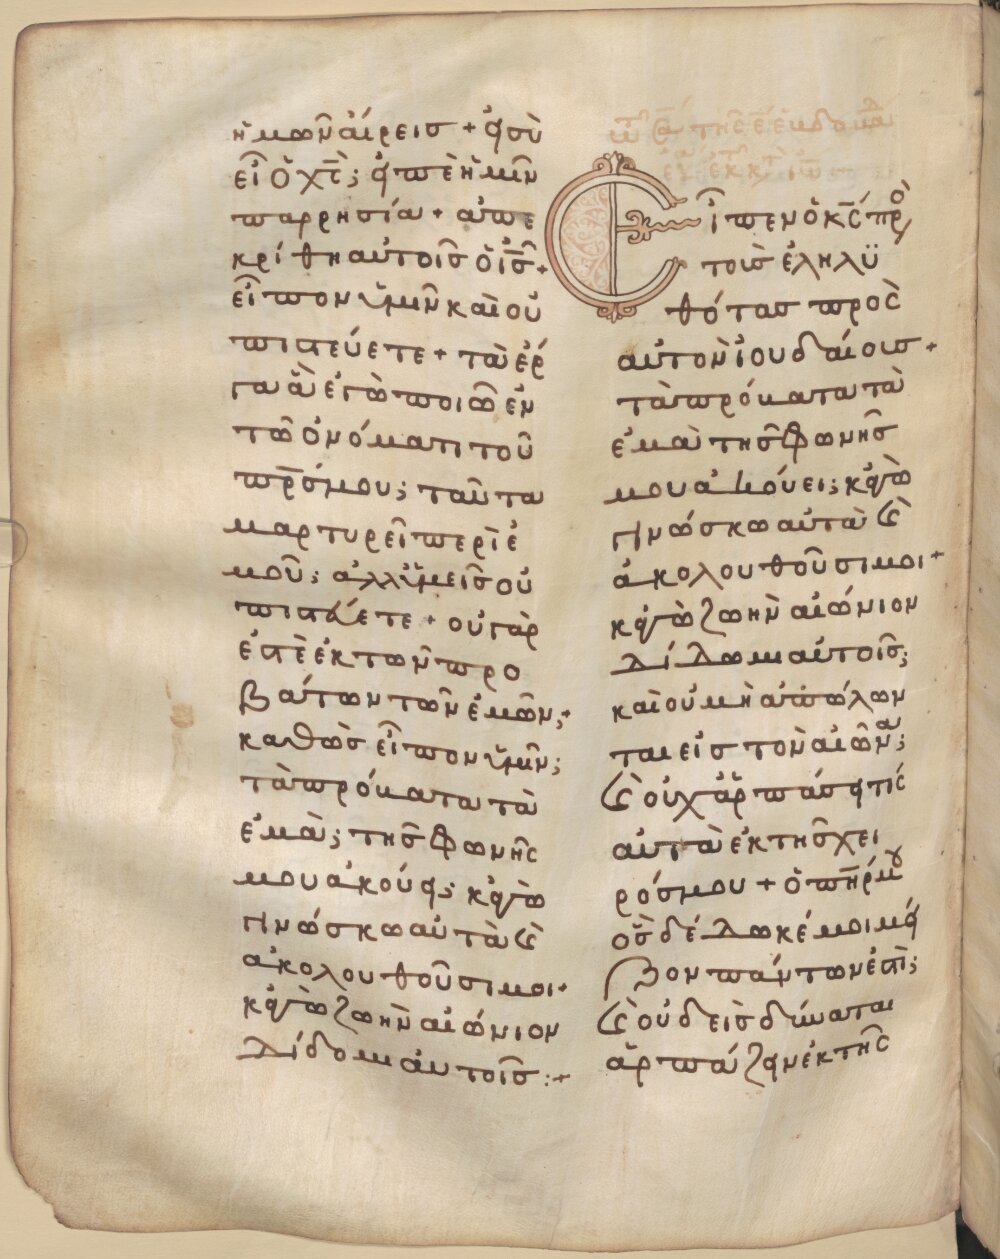 ἡμῶν αἴρεις + εἰ σὺ
εἶ ὁ χς̅; εἰπὲ ἡμῖν
παρρησία + ἀπε
κρίθη αὐτοῖς ὁ ις̅ +
εἶπον ὑμῖν καὶ οὐ
πιστεύετε + τὰ ἔρ
γα ἃ ἐγὼ ποιῶ ἐν
τῶ ὀνόματι τοῦ
πρ̅ς μου; ταῦτα
μαρτυρεῖ περὶ ἐ
μοῦ; ἀλλ ὑμεῖς οὐ
πιστεύετε + οὐ γάρ
ἐστὲ ἐκ τῶν προ
βάτων τῶν ἐμῶν; +
καθὼς εἶπον ὑμῖν;
τὰ πρόβατα τὰ
ἐμὰ; τῆς φωνῆς
μου ἀκούει; κἀγὼ
γινώσκω αὐτὰ καὶ
ἀκολουθοῦσι μοι +
κἀγὼ ζωὴν αἰώνιον
δίδομι αὐτοῖς :+
Εἶπεν ὁ κς̅ πρὸ
τοὺς ἐληλυ
θότας πρὸς
αὐτὸν ἰουδαίους +
τὰ πρόβατα τὰ
ἐμὰ τῆς φωνῆς
μου ἀκούει; κἀγὼ
γινώσκω αὐτὰ καὶ
ἀκολουθοῦσι μοι +
κἀγὼ ζωὴν αἰώνιον
δίδωμι αὐτοῖς;
καὶ οὐ μὴ ἀπόλων
ται εἰς τὸν αἰῶνα;
καὶ οὐχ ἁρπάσει τίς
αὐτὰ ἐκ τῆς χει
ρός μου + ὁ πη̅ρ μου
ὃς δέδωκέ μοι μεί
ζον πάντων ἐστὶ;
καὶ οὐδεὶς δύναται
ἁρπάζειν ἐκ τῆς